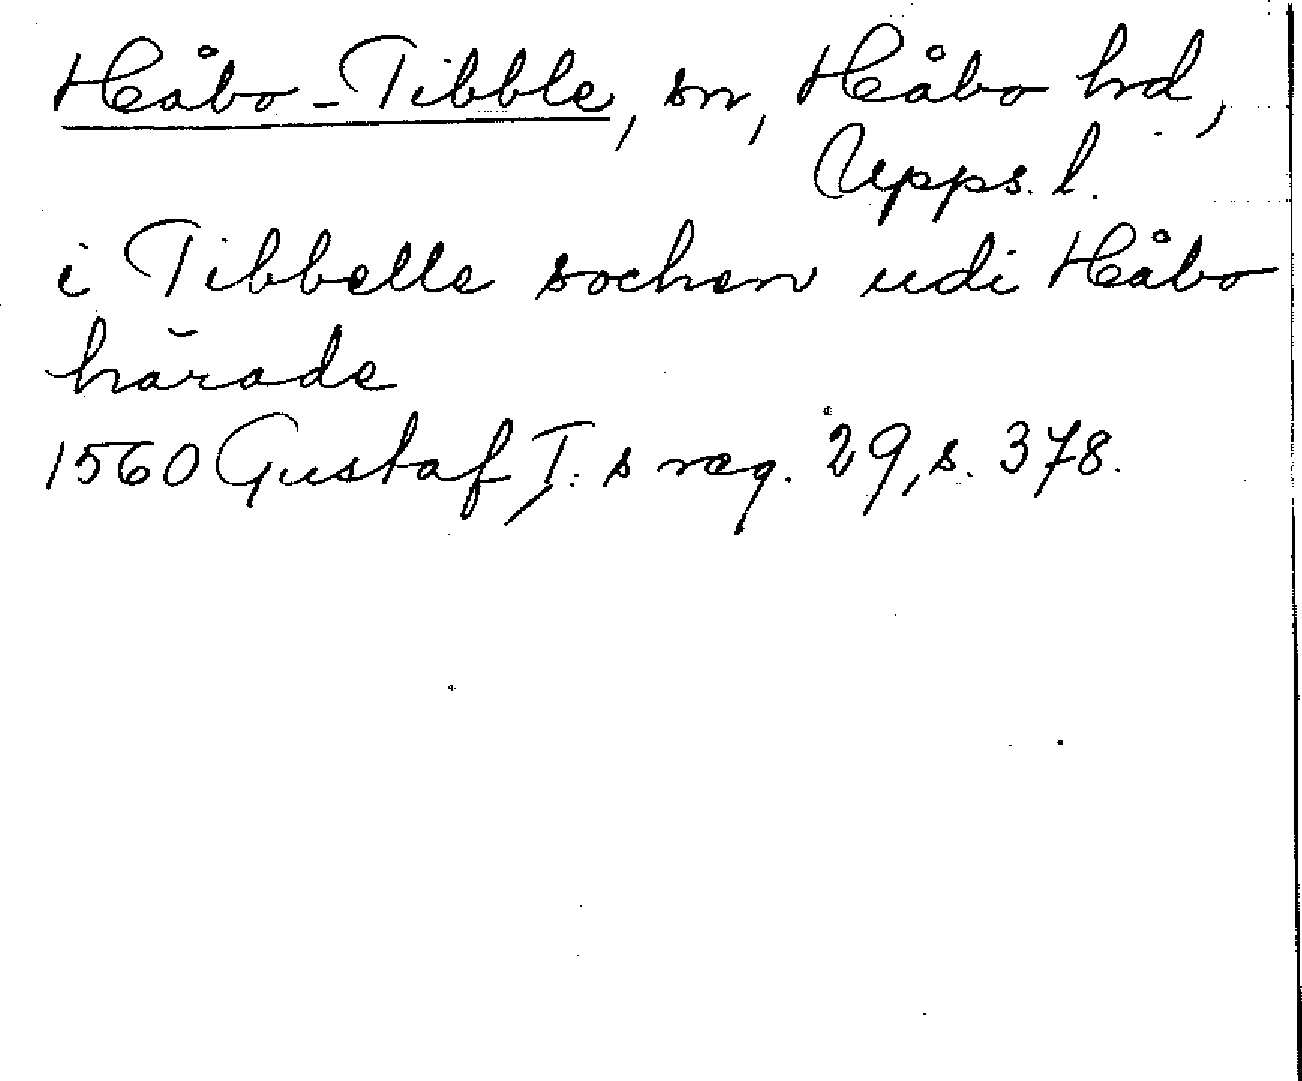 Håbo-Tibble, sn, Håbo hd,
Upps. l.
i Tibbelle sochen udi Håbo
härade
1560 Gustaf I:s reg. 29, s. 378.